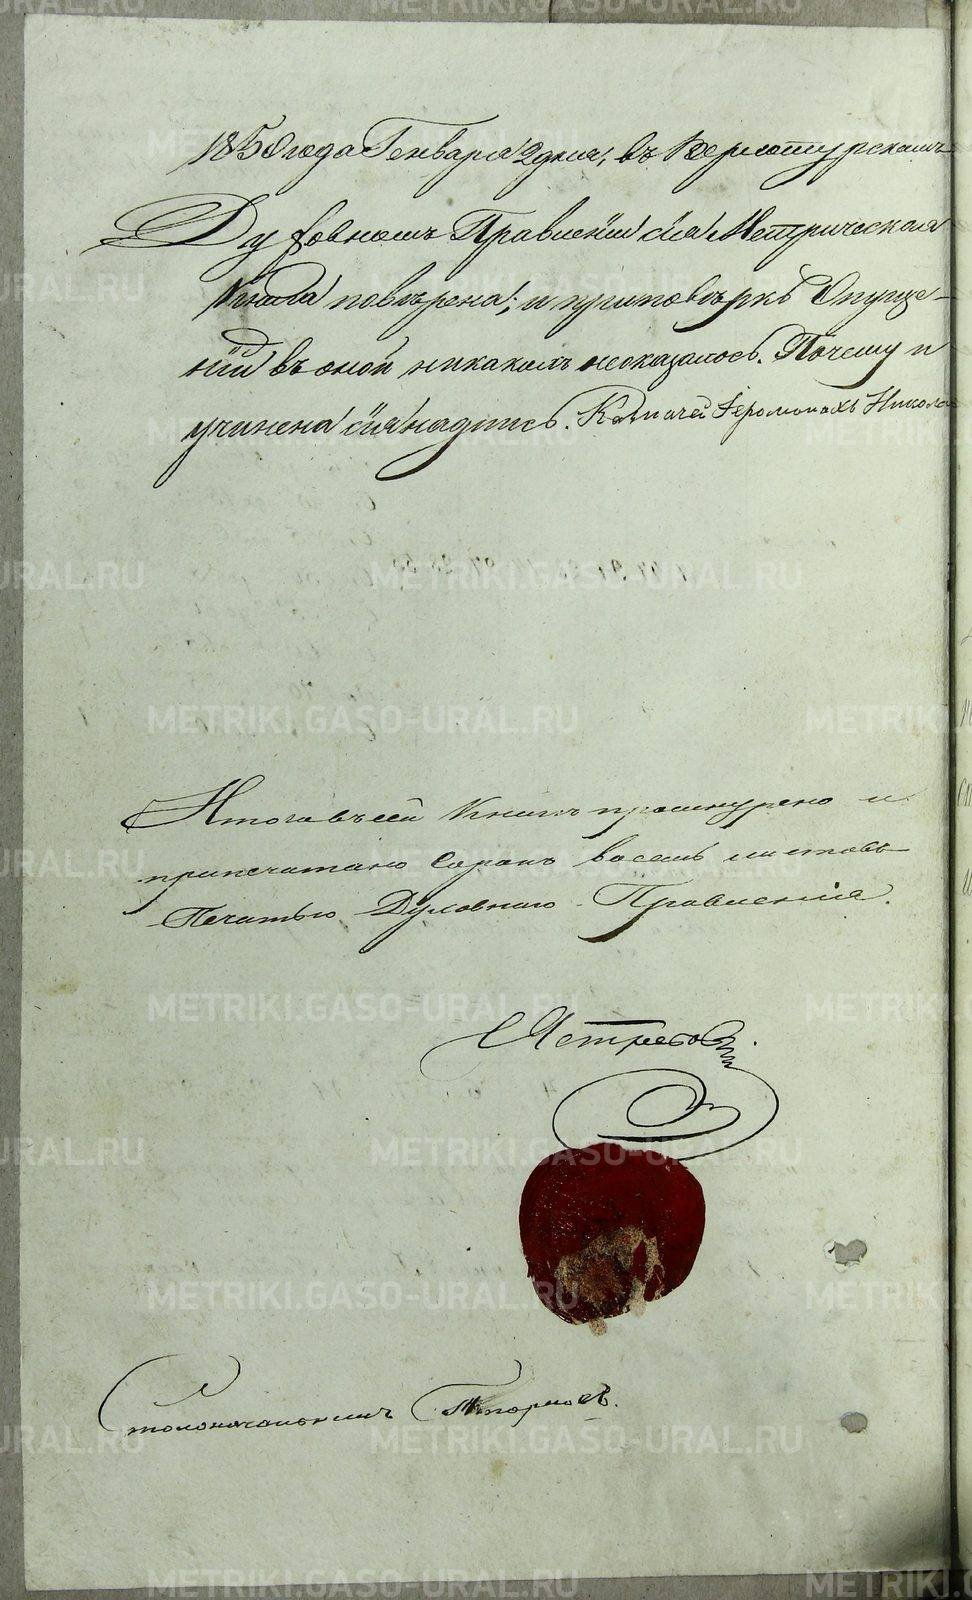 1850 года Генваря 2 дня, въ Верхотурскомъ
Духовномъ Правленіи сія Метрическая
Книга повѣрена; и при повѣркѣ Опуще-
ній въ оной никакихъ неоказалось. Почему и
учинена сія надпись. Казначей Іеромонахъ Никола
Итого въ сей Книгѣ прошнурено и
припечатано Сорокъ восемь листовъ
Печатью Духовнаго Правленія.
Ястребовъ
Столоначальникъ
METRIKI.GASO-URAL.RU